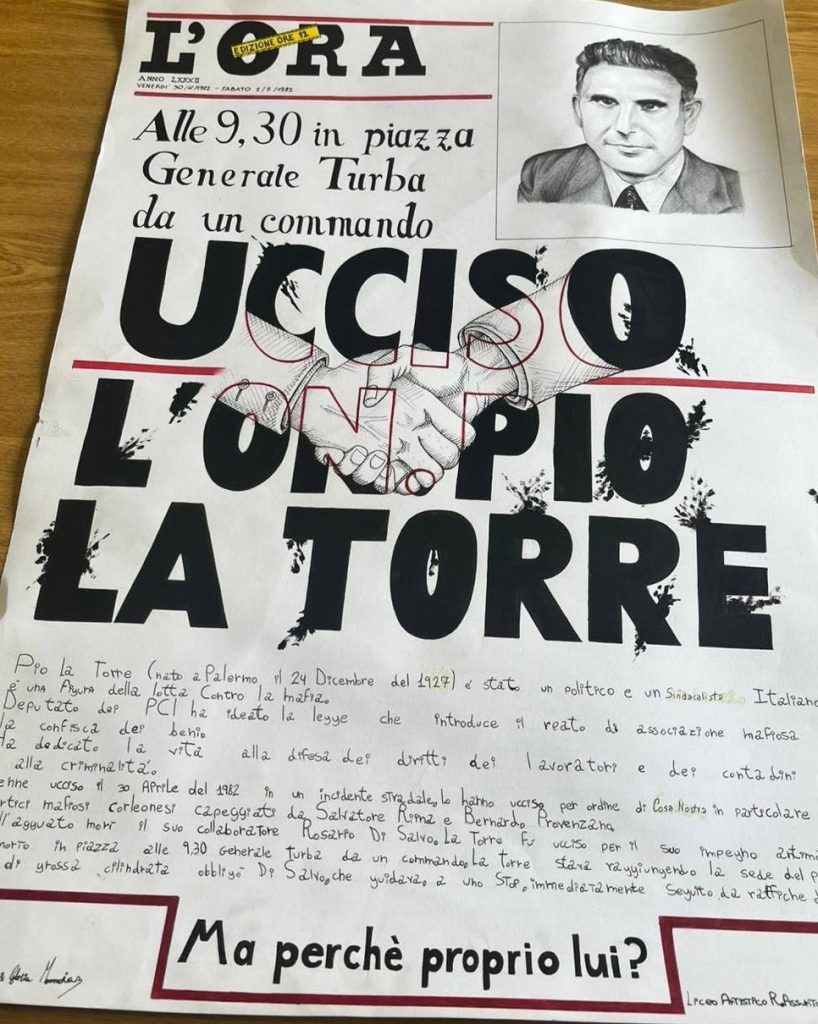 L'ORA
EDIZIONE ORE 12
ANNO LXXXII
VENERDI' 30/4/1982 - SABATO 1/5/1982
Alle 9,30 in piazza
Generale Turba
da un commando
UCCISO
L'ON. PIO
LA TORRE
Pio la Torre (nato a Palermo il 24 Dicembre del 1927) é stato un politico e un Sindacalista Italiano
è una figura della lotta contro la mafia.
Deputato dei PCI ha ideato la legge che introduce il reato di associazione mafiosa
la confisca dei beni.
Ha dedicato la vita alla difesa dei diritti dei lavoratori e dei contadini
alla criminalità.
enne ucciso il 30 Aprile del 1982 in un incidente stradale, lo hanno ucciso per ordine di Cosa Nostra in particolare
ertici mafiosi corleonesi capeggiati da Salvatore Riina e Bernardo Provenzano
ll'agguato morì il suo collaboratore Rosario Di Salvo. La Torre fu ucciso per il suo impegno antima
morto in piazza alle 9,30 Generale Turba da un commando, La torre stava raggiungendo la sede del p
di grossa cilindrata obbligò Di Salvo, che guidava, a uno Stop, immediatamente seguito da raffiche d
Ma perchè proprio lui?
LICEO ARTISTICO